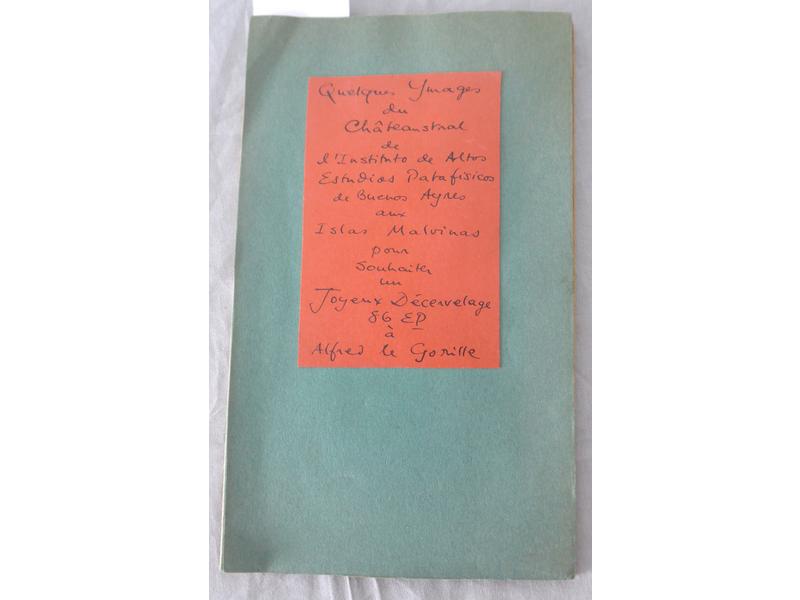 Quelques Ymages
du
Châteaustral
de
l'Instituto de Altos
Estudios Patafisicos
de Buenos Ayres
aux
Islas Malvinas
pour
souhaiter
un
Joyeux Décervelage
86 EP
à
Alfred le Gorille